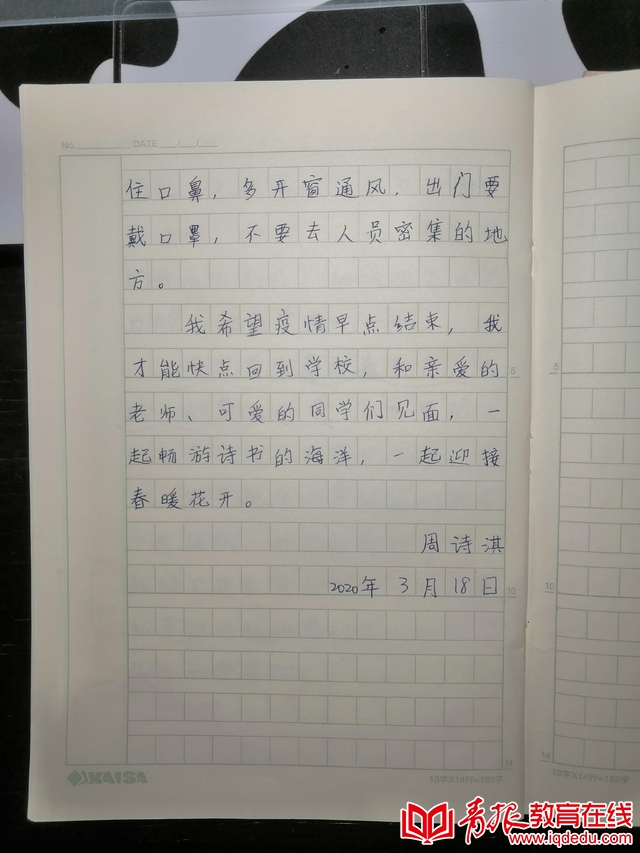 No. DATE / /
住口鼻，多开窗通风，出门要
戴口罩，不要去人员密集的地
方。
我希望疫情早点结束，我
才能快点回到学校，和亲爱的
老师、可爱的同学们见面，一
起畅游诗书的海洋，一起迎接
春暖花开。
周诗淇
2020年3月18日
5
10
14
KAISA
13字X14行=182字
5
10
14
13字X14行=182字
青报教育在线
www.iqdedu.com